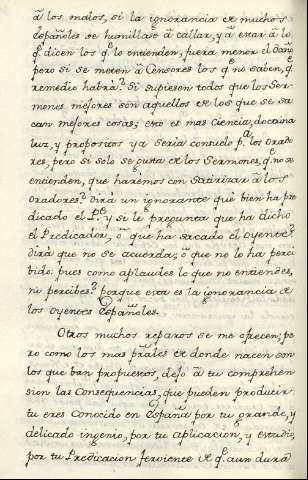 â los malos, si la ignorancia de muchos
Españoles se humillase â callar, y â estar â lo
q.e dicen los q.e lo entienden, fuera menor el daño
pero si se meten â Censores los q.e no saben, q.e
remedio habrà? Si supiesen todos que los Ser-
mones mejores son aquellos de los que se sa-
can mejores cosas; esto es mas Ciencia, doctrina
luz, y propositos ya seria consuelo p.a los Orado-
res, pero si solo se gusta de los Sermones, q.e no se
entienden, que harémos con Satirizar â los
Oradores? Dirá un ignorante qué bien ha pre-
dicado el P.e y si le pregunta que ha dicho
el Predicador, ô que ha sacado el Oyente?
Dirá que no se acuerda; ô que no lo ha perci-
bido: pues como aplaudes lo que no entiendes,
ni percibes? porque esta es la ignorancia de
los oyentes Españoles.
Otros muchos reparos se me ofrecen; pe-
ro como los mas prâles de donde nacen son
los que ban propuestos, dejo â tu comprehen-
sion las Consequencias, que pueden producir
tu eres Conocido en España por tu grande, y
delicado ingenio, por tu aplicacion, y estudio,
por tu Predicacion ferviente de q.e aun dura